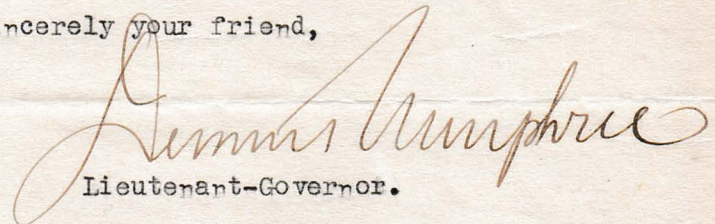 ncerely your friend,
Dennis Murphree
Lieutenant-Governor.